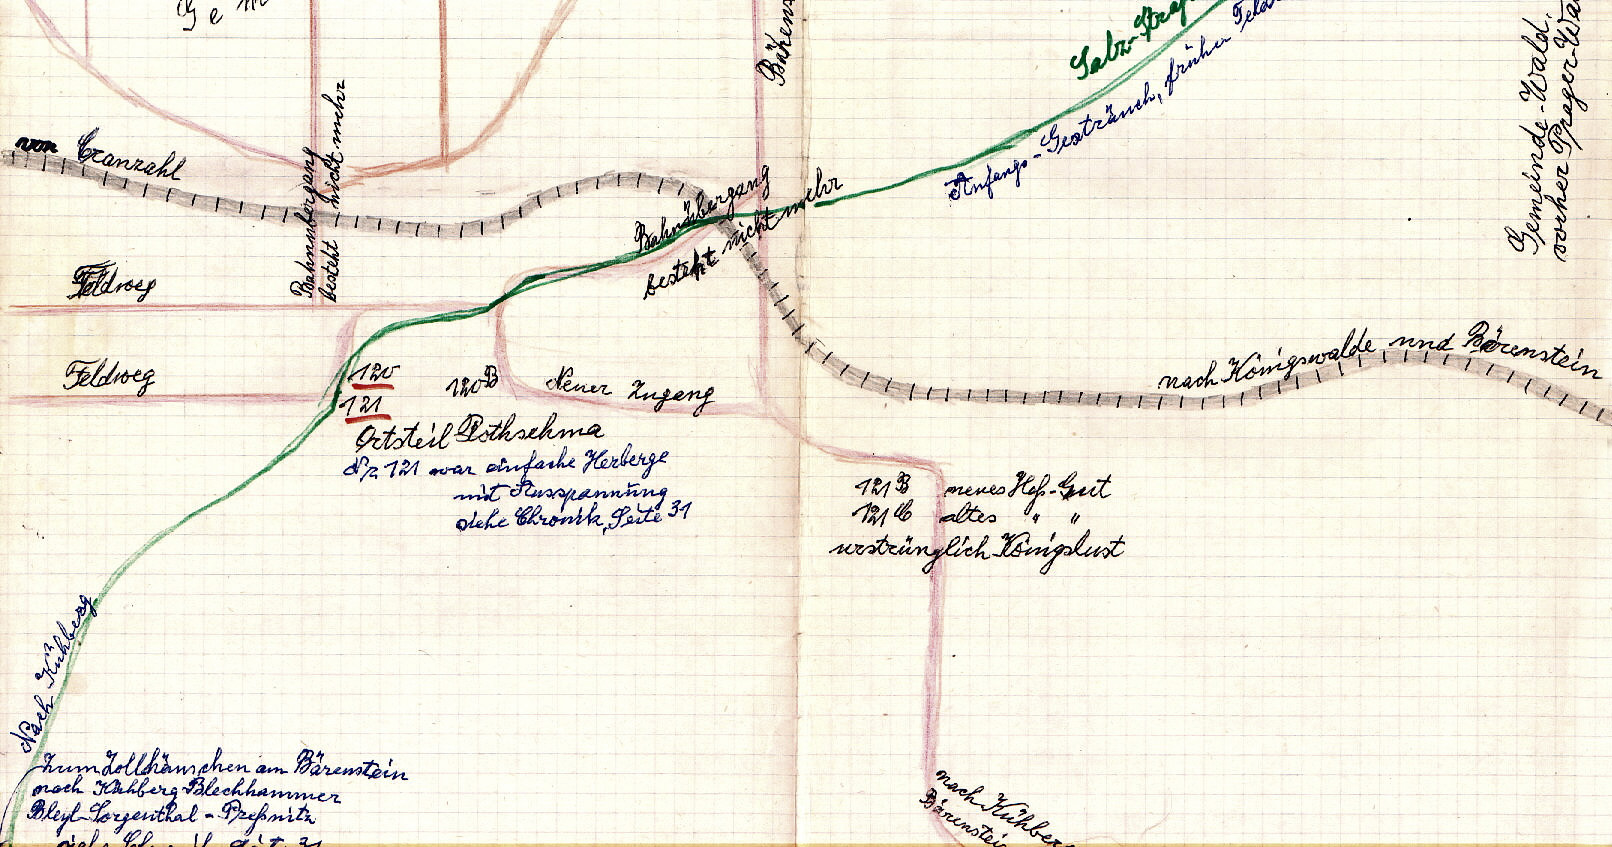 Ge
Bärens
Salz-Straß
Anfangs-Gesträuch, früher Feld
Gemeinde-Wald,
vorher Prager-Wa
von Cranzahl
Bahnübergang
besteht nicht mehr
Bahnübergang
besteht nicht mehr
Feldweg
Feldweg
nach Königswalde und Bärenstein
120
121
120B Neuer Zugang
Ortsteil Pothsehma
Nr 121 war einfache Herberge
mit Ausspannung
siehe Chronik, Seite 31
121 B neues Heß-Gut
121 C altes " "
ursprünglich Königslust
Nach Kühberg
Zum Zollhäuschen am Bärenstein
nach Kühberg-Blechhammer
Bleyl-Sorgenthal - Preßnitz
31
nach Kühberg
Bärenstein